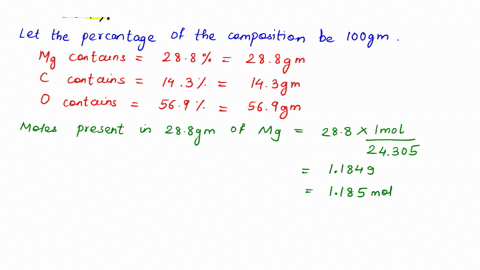 Let the percantage of the composition be 100gm.
Mg contains = 28.8% = 28.8gm
C contains = 14.3% = 14.3gm
O contains = 56.9% = 56.9gm
Moles present in 28.8gm of Mg = 28.8 × 1mol / 24.305
= 1.1849
= 1.185 mol